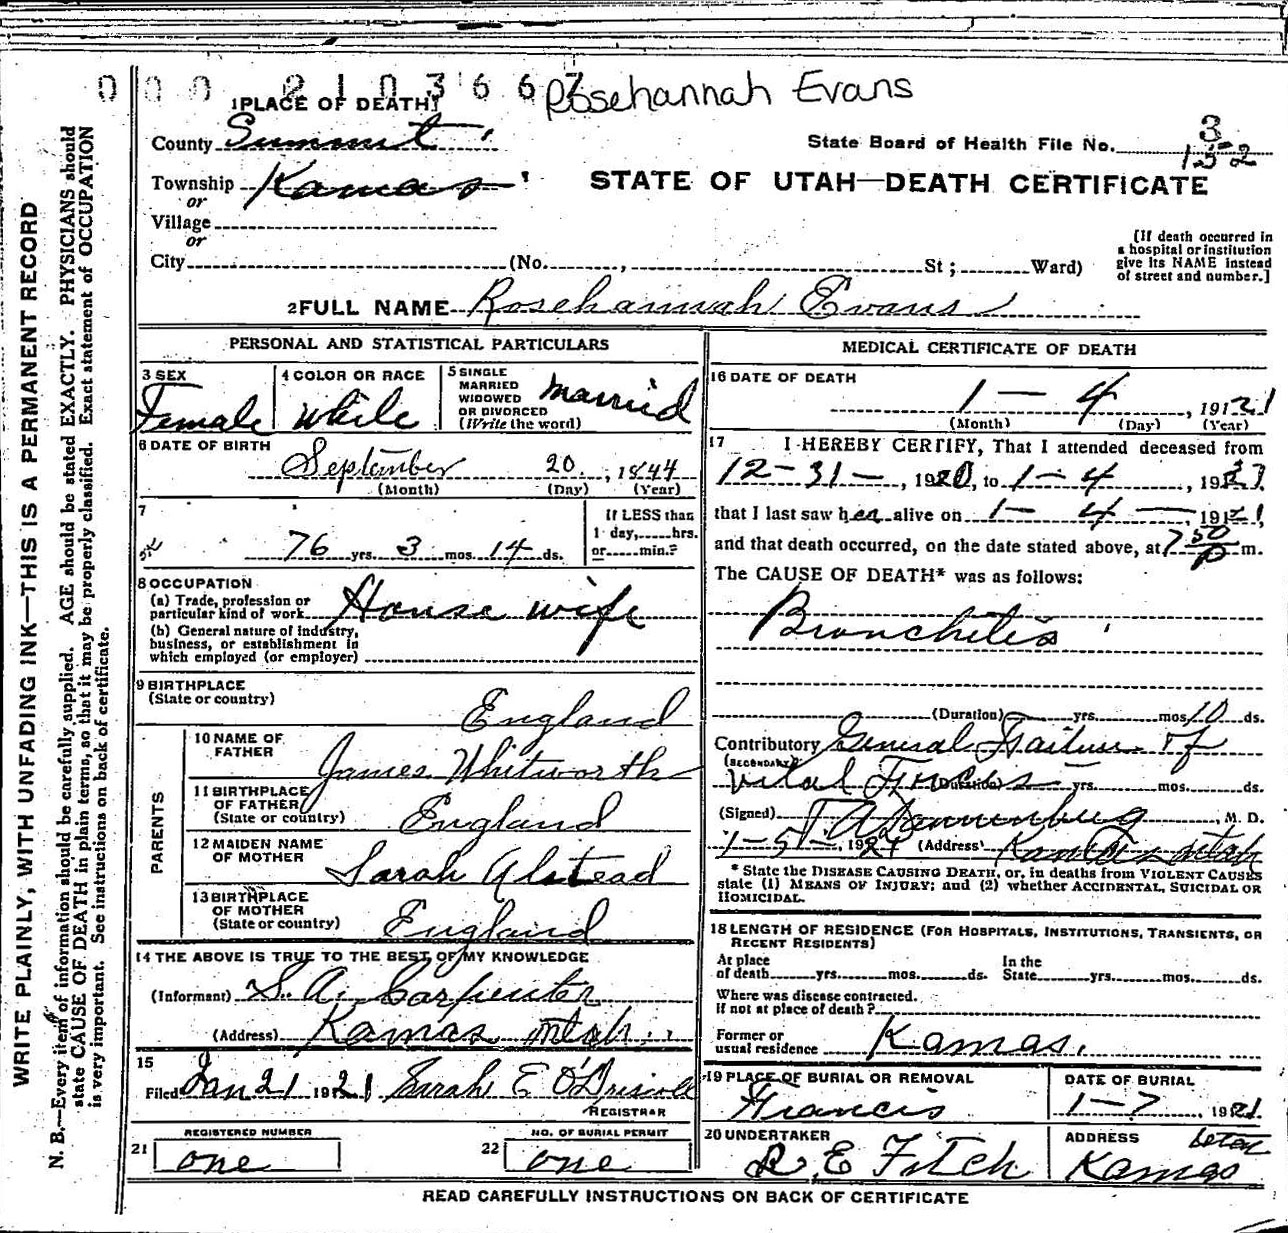 0 0 0 2 1 0 3 6 6 7 Rosehannah Evans
1 PLACE OF DEATH
County Summit
State Board of Health File No. 3
152
Township Kamas
STATE OF UTAH—DEATH CERTIFICATE
or
Village
or
City (No. , St ; Ward)
[If death occurred in
a hospital or institution
give its NAME instead
of street and number.]
2 FULL NAME Rosehannah Evans
PERSONAL AND STATISTICAL PARTICULARS
3 SEX
Female
4 COLOR OR RACE
White
5 SINGLE
MARRIED
WIDOWED
OR DIVORCED
(Write the word)
Married
6 DATE OF BIRTH
September 20, 1844
(Month) (Day) (Year)
7
76 yrs. 3 mos. 14 ds.
If LESS than
1 day, hrs.
or min.?
8 OCCUPATION
(a) Trade, profession or
particular kind of work House wife
(b) General nature of industry,
business, or establishment in
which employed (or employer)
9 BIRTHPLACE
(State or country)
England
PARENTS
10 NAME OF
FATHER
James Whitworth
11 BIRTHPLACE
OF FATHER
(State or country)
England
12 MAIDEN NAME
OF MOTHER
Sarah Alstead
13 BIRTHPLACE
OF MOTHER
(State or country)
England
14 THE ABOVE IS TRUE TO THE BEST OF MY KNOWLEDGE
(Informant) S. A. Carpenter
(Address) Kamas Utah
15
Filed Jan 21 1921 Sarah E O'Driscoll
REGISTRAR
REGISTERED NUMBER
21 one
NO. OF BURIAL PERMIT
22 one
MEDICAL CERTIFICATE OF DEATH
16 DATE OF DEATH
1 — 4 , 1921
(Month) (Day) (Year)
17 I HEREBY CERTIFY, That I attended deceased from
12-31- , 1920, to 1-4 , 1921
that I last saw her alive on 1- 4 — 1921,
and that death occurred, on the date stated above, at 7 50 P m.
The CAUSE OF DEATH* was as follows:
Bronchitis
(Duration) yrs. mos. 10 ds.
Contributory General Failure of
(SECONDARY)
Vital Forces (Duration) yrs. mos. ds.
(Signed) , M. D.
1-5- , 1921 (Address) Kamas Utah
* State the DISEASE CAUSING DEATH, or, in deaths from VIOLENT CAUSES
state (1) MEANS OF INJURY; and (2) whether ACCIDENTAL, SUICIDAL OR
HOMICIDAL.
18 LENGTH OF RESIDENCE (FOR HOSPITALS, INSTITUTIONS, TRANSIENTS, OR
RECENT RESIDENTS)
At place
of death yrs. mos. ds.
In the
State yrs. mos. ds.
Where was disease contracted.
if not at place of death?
Former or
usual residence Kamas.
19 PLACE OF BURIAL OR REMOVAL
Francis
DATE OF BURIAL
1-7 , 1921
20 UNDERTAKER
R. E Fitch
ADDRESS Utah
Kamas
READ CAREFULLY INSTRUCTIONS ON BACK OF CERTIFICATE
WRITE PLAINLY, WITH UNFADING INK—THIS IS A PERMANENT RECORD
N. B.—Every item of information should be carefully supplied. AGE should be stated EXACTLY. PHYSICIANS should
state CAUSE OF DEATH in plain terms, so that it may be properly classified. Exact statement of OCCUPATION
is very important. See instructions on back of certificate.